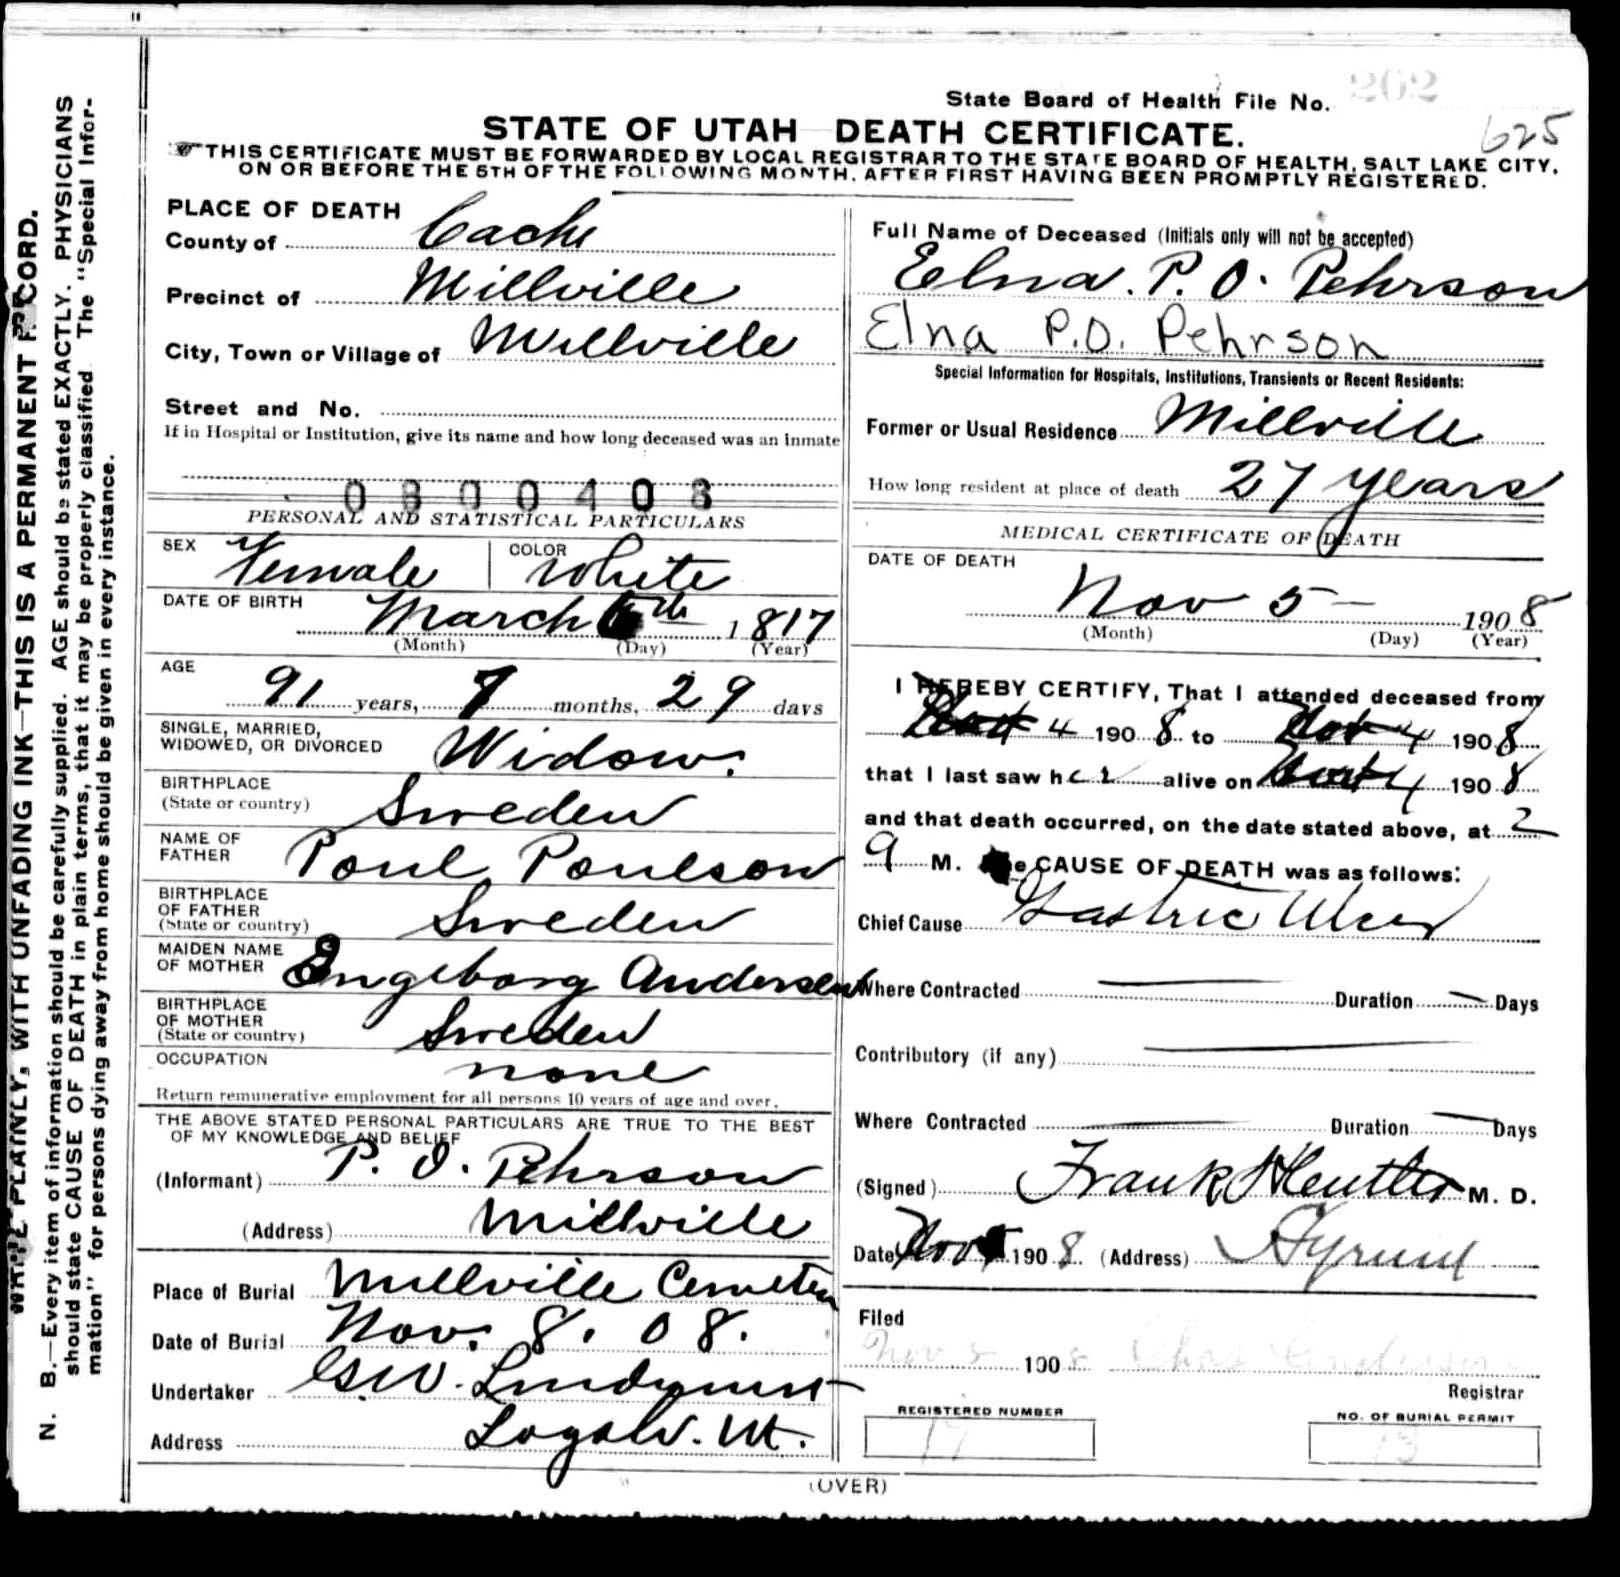 State Board of Health File No. 262
625
STATE OF UTAH DEATH CERTIFICATE.
THIS CERTIFICATE MUST BE FORWARDED BY LOCAL REGISTRAR TO THE STATE BOARD OF HEALTH, SALT LAKE CITY,
ON OR BEFORE THE 5TH OF THE FOLLOWING MONTH, AFTER FIRST HAVING BEEN PROMPTLY REGISTERED.
WRITE PLAINLY, WITH UNFADING INK—THIS IS A PERMANENT RECORD.
N. B.—Every item of information should be carefully supplied. AGE should be stated EXACTLY. PHYSICIANS
should state CAUSE OF DEATH in plain terms, that it may be properly classified. The "Special Infor-
mation" for persons dying away from home should be given in every instance.
PLACE OF DEATH
County of Cache
Precinct of Millville
City, Town or Village of Millville
Street and No.
If in Hospital or Institution, give its name and how long deceased was an inmate
0800408
PERSONAL AND STATISTICAL PARTICULARS
SEX Female COLOR White
DATE OF BIRTH March 6th 1817
(Month) (Day) (Year)
AGE 91 years, 7 months, 29 days
SINGLE, MARRIED,
WIDOWED, OR DIVORCED Widow.
BIRTHPLACE
(State or country) Sweden
NAME OF
FATHER Poul Poulson
BIRTHPLACE
OF FATHER
(State or country) Sweden
MAIDEN NAME
OF MOTHER Engeborg Andersen
BIRTHPLACE
OF MOTHER
(State or country) Sweden
OCCUPATION none
Return remunerative employment for all persons 10 years of age and over.
THE ABOVE STATED PERSONAL PARTICULARS ARE TRUE TO THE BEST
OF MY KNOWLEDGE AND BELIEF
(Informant) P. O. Pehrson
(Address) Millville
Place of Burial Millville Cemetery
Date of Burial Nov. 8. 08.
Undertaker G W. Lindquist
Address Logan. Ut.
Full Name of Deceased (Initials only will not be accepted)
Elna. P. O. Pehrson
Elna P.O. Pehrson
Special Information for Hospitals, Institutions, Transients or Recent Residents:
Former or Usual Residence Millville
How long resident at place of death 27 years
MEDICAL CERTIFICATE OF DEATH
DATE OF DEATH
Nov 5 — 1908
(Month) (Day) (Year)
I HEREBY CERTIFY, That I attended deceased from
4 1908 to Nov 4 1908
that I last saw her alive on 4 1908
and that death occurred, on the date stated above, at 2
a M. The CAUSE OF DEATH was as follows:
Chief Cause Gastric Ulcer
Where Contracted — Duration — Days
Contributory (if any) —
Where Contracted — Duration — Days
(Signed) Frank M. D.
Date Nov 1908 (Address) Hyrum
Filed
Nov 8 1908 Chas Anderson
Registrar
REGISTERED NUMBER 17
NO. OF BURIAL PERMIT 13
(OVER)